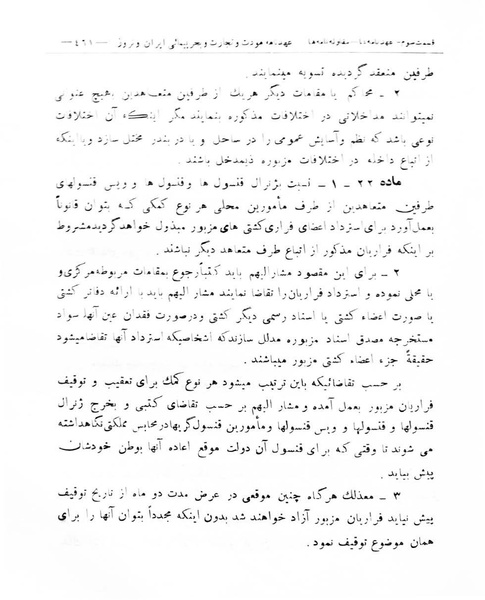 قسمت سوم - عهدنامه‌ها - مقاوله‌نامه‌ها عهدنامه مودت و تجارت و بحرپیمائی ایران و نروژ - ٤٦١ -
طرفین منعقد گردیده تسویه مینمایند.
٢ - محاکم یا مقامات دیگر هریک از طرفین متعاهدین بهیچ عنوانی
نمیتوانند مداخلاتی در اختلافات مذکوره بنمایند مگر اینکه آن اختلافات
نوعی باشد که نظم و آسایش عمومی را در ساحل و یا در بندر مختل سازد و یا اینکه
از اتباع داخله در اختلافات مزبوره ذیمدخل باشند.
ماده ٢٢ - ١ - نسبت بژنرال قنسول ها و قنسول ها و ویس قنسولهای
طرفین متعاهدین از طرف مأمورین محلی هر نوع کمکی که بتوان قانوناً
بعمل آورد برای استرداد اعضای فراری کشتی های مزبور مبذول خواهد گردید مشروط
بر اینکه فراریان مذکور از اتباع طرف متعاهد دیگر نباشند.
٢ - برای این مقصود مشارالیهم باید کتباً رجوع بمقامات مربوطه مرکزی و
یا محلی نموده و استرداد فراریان را تقاضا نمایند مشار الیهم باید با ارائه دفاتر کشتی
یا صورت اعضاء کشتی یا اسناد رسمی دیگر کشتی و در صورت فقدان عین آنها سواد
مستخرجه مصدق اسناد مزبوره مدلل سازند که اشخاصیکه استرداد آنها تقاضا میشود
حقیقةً جزء اعضاء کشتی مزبور میباشند.
بر حسب تقاضائیکه باین ترتیب میشود هر نوع کمک برای تعقیب و توقیف
فراریان مزبور بعمل آمده و مشار الیهم بر حسب تقاضای کتبی و بخرج ژنرال
قنسولها و قنسولها و ویس قنسولها و مأمورین قنسولگریها در محابس مملکتی نگاهداشته
می شوند تا وقتی که برای قنسول آن دولت موقع اعاده آنها بوطن خودشان
پیش بیاید.
٣ - معذلک هرگاه چنین موقعی در عرض مدت دو ماه از تاریخ توقیف
پیش نیاید فراریان مزبور آزاد خواهند شد بدون اینکه مجدداً بتوان آنها را برای
همان موضوع توقیف نمود.